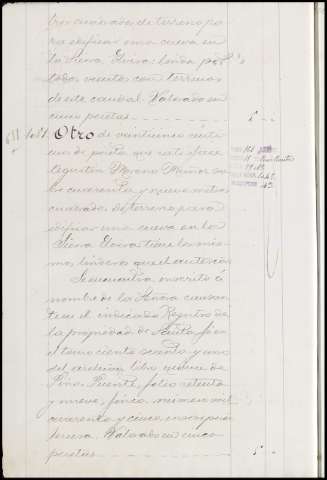 tros cuadrados de terreno pa
ra edificar una cueva en
la Sierra Gorda linda por
todos vientos con terrenos
de este caudal. Valorado en
cinco pesetas 5
Otro de veintiuno cénti
mos de peseta que satisface
Agustín Moreno Muñoz so
bre cuarenta y nueve metros
cuadrados de terreno para
edificar una cueva en la
Sierra Gorda tiene los mis
mos linderos que el anterior
Se encuentra inscrito á
nombre de la
en el indicado Registro de
la propiedad de
el tomo ciento sesenta y uno
del archivo libro quince de
Puente, folio setenta
y nueve, finca número mil
cuarenta y cinco inscripción
tercera. Valorado en cinco
pesetas 5